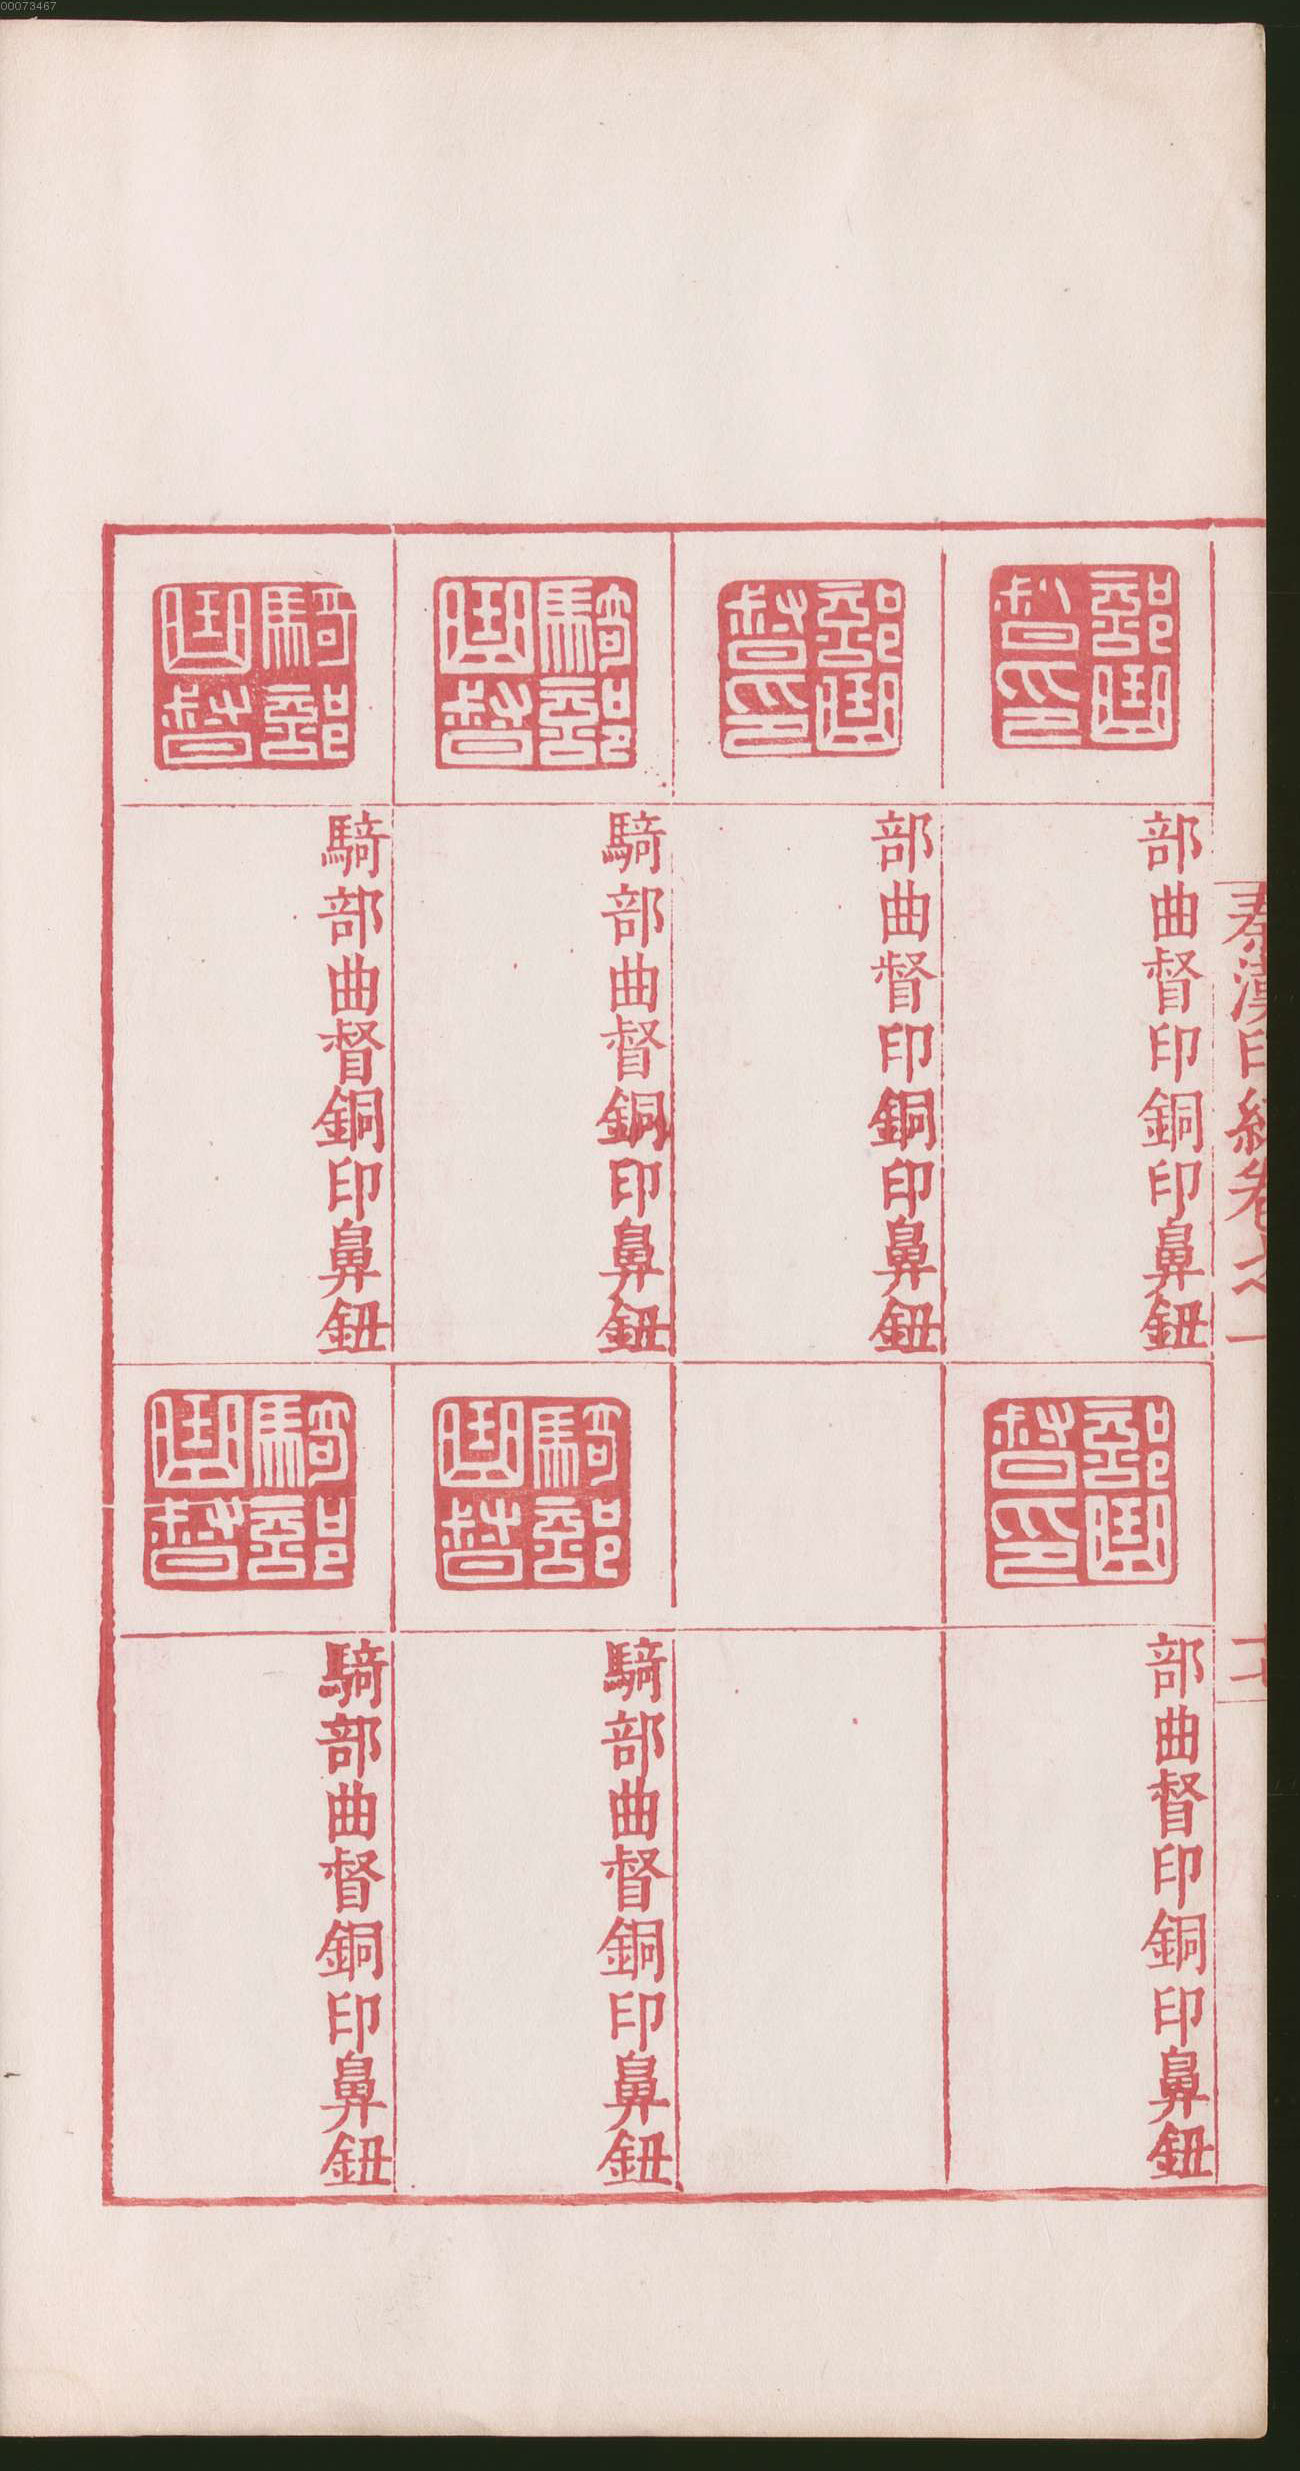 00073467
秦漢印統卷之一
部曲督印
部曲督印銅印鼻鈕
部曲督印
部曲督印銅印鼻鈕
部曲督印
部曲督印銅印鼻鈕
騎部曲督
騎部曲督銅印鼻鈕
騎部曲督
騎部曲督銅印鼻鈕
騎部曲督
騎部曲督銅印鼻鈕
騎部曲督
騎部曲督銅印鼻鈕